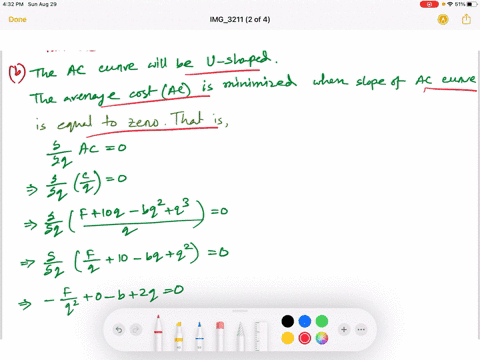 4:32 PM Sun Aug 29
51%
Done
IMG_3211 (2 of 4)
(b) The AC curve will be U-shaped.
The average cost (AC) is minimized when slope of AC curve
is equal to zero. That is,
δ/δq AC = 0
⇒ δ/δq (c/q) = 0
⇒ δ/δq ((F+10q - bq² + q³)/q) = 0
⇒ δ/δq (F/q + 10 - bq + q²) = 0
⇒ -F/q² + 0 - b + 2q = 0